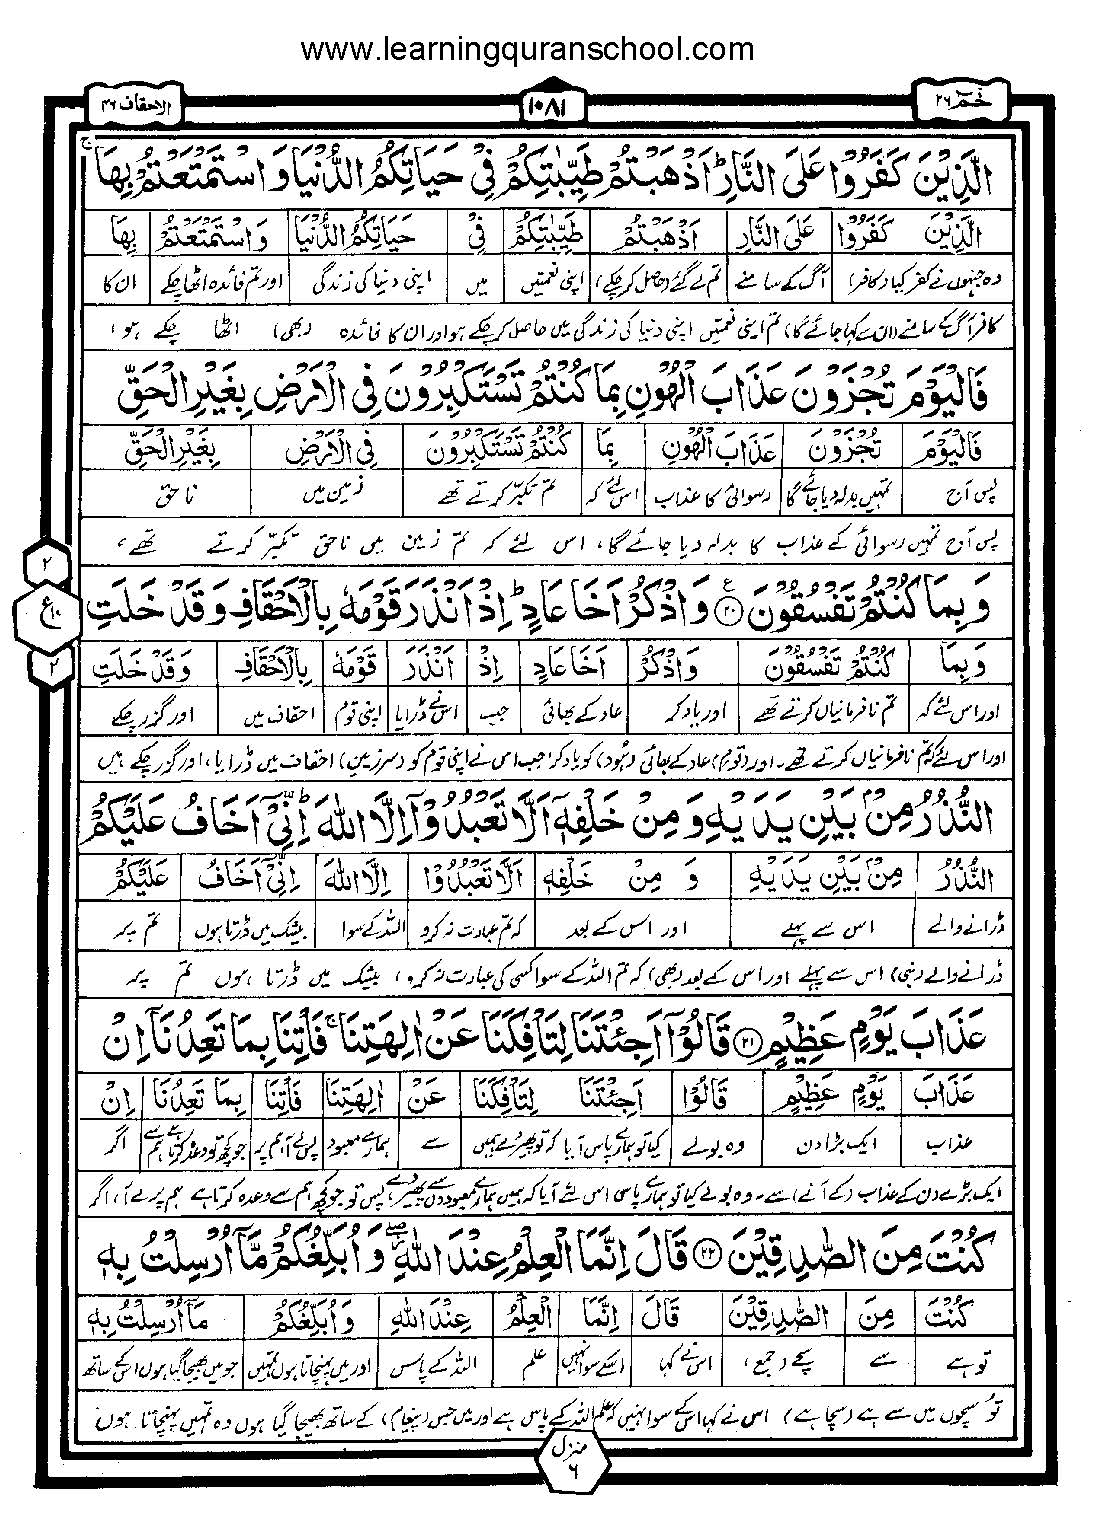 www.learningquranschool.com
الاحقاف ۴۶
۱۰۸۱
حٰمٓ ۲۶
الَّذِيْنَ كَفَرُوْا عَلَى النَّارِ ؕ اَذْهَبْتُمْ طَيِّبٰتِكُمْ فِيْ حَيَاتِكُمُ الدُّنْيَا وَ اسْتَمْتَعْتُمْ بِهَا ۚ
الَّذِيْنَ كَفَرُوْا عَلَى النَّارِ اَذْهَبْتُمْ طَيِّبٰتِكُمْ فِيْ حَيَاتِكُمُ الدُّنْيَا وَ اسْتَمْتَعْتُمْ بِهَا
وہ جنہوں نے کفر کیا (کافر) آگ کے سامنے تم لے گئے (حاصل کر چکے) اپنی نعمتیں میں اپنی دنیا کی زندگی اور تم فائدہ اٹھا چکے ان کا
کافر آگ کے سامنے (ان سے کہا جائے گا) تم اپنی نعمتیں اپنی دنیا کی زندگی میں حاصل کر چکے ہو اور ان کا فائدہ (بھی) اٹھا چکے ہو ،
فَالْيَوْمَ تُجْزَوْنَ عَذَابَ الْهُوْنِ بِمَا كُنْتُمْ تَسْتَكْبِرُوْنَ فِي الْاَرْضِ بِغَيْرِ الْحَقِّ
فَالْيَوْمَ تُجْزَوْنَ عَذَابَ الْهُوْنِ بِمَا كُنْتُمْ تَسْتَكْبِرُوْنَ فِي الْاَرْضِ بِغَيْرِ الْحَقِّ
پس آج تمہیں بدلہ دیا جائے گا رسوائی کا عذاب اس لئے کہ تم تکبّر کرتے تھے زمین میں نا حق
پس آج تمہیں رسوائی کے عذاب کا بدلہ دیا جائے گا، اس لئے کہ تم زمین میں ناحق تکبّر کرتے تھے،
۲
ع ۱۰
۲
وَ بِمَا كُنْتُمْ تَفْسُقُوْنَ ۲۰ ع وَ اذْكُرْ اَخَا عَادٍ ؕ اِذْ اَنْذَرَ قَوْمَهٗ بِالْاَحْقَافِ وَ قَدْ خَلَتِ
وَ بِمَا كُنْتُمْ تَفْسُقُوْنَ وَ اذْكُرْ اَخَا عَادٍ اِذْ اَنْذَرَ قَوْمَهٗ بِالْاَحْقَافِ وَ قَدْ خَلَتِ
اور اس لئے کہ تم نافرمانیاں کرتے تھے اور یاد کر عاد کے بھائی جب اس نے ڈرایا اپنی قوم احقاف میں اور گزر چکے
اور اس لئے کہ تم نافرمانیاں کرتے تھے۔ اور (قوم) عاد کے بھائی (ہود) کو یاد کر، جب اس نے اپنی قوم کو (سر زمین) احقاف میں ڈرایا، اور گزر چکے ہیں
النُّذُرُ مِنْ بَيْنِ يَدَيْهِ وَ مِنْ خَلْفِهٖۤ اَلَّا تَعْبُدُوْۤا اِلَّا اللّٰهَ ؕ اِنِّيْۤ اَخَافُ عَلَيْكُمْ
النُّذُرُ مِنْ بَيْنِ يَدَيْهِ وَ مِنْ خَلْفِهٖۤ اَلَّا تَعْبُدُوْۤا اِلَّا اللّٰهَ اِنِّيْۤ اَخَافُ عَلَيْكُمْ
ڈرانے والے اس سے پہلے اور اس کے بعد کہ تم عبادت نہ کرو اللہ کے سوا بیشک میں ڈرتا ہوں تم پر
ڈرانے والے (نبی) اس سے پہلے اور اس کے بعد (بھی) کہ تم اللہ کے سوا کسی کی عبادت نہ کرو، بیشک میں ڈرتا ہوں تم پر
عَذَابَ يَوْمٍ عَظِيْمٍ ۲۱ قَالُوْۤا اَجِئْتَنَا لِتَاْفِكَنَا عَنْ اٰلِهَتِنَا ۚ فَاْتِنَا بِمَا تَعِدُنَاۤ اِنْ
عَذَابَ يَوْمٍ عَظِيْمٍ قَالُوْۤا اَجِئْتَنَا لِتَاْفِكَنَا عَنْ اٰلِهَتِنَا فَاْتِنَا بِمَا تَعِدُنَاۤ اِنْ
عذاب ایک بڑا دن وہ بولے کیا تو ہمارے پاس آیا کہ تو پھیر دے ہمیں سے ہمارے معبود پس لے آ ہم پر جو کچھ تو وعدہ کرتا ہے ہم سے اگر
ایک بڑے دن کے عذاب (کے آنے) سے۔ وہ بولے کیا تو ہمارے پاس اس لئے آیا کہ ہمیں ہمارے معبودوں سے پھیر دے، پس تو جو کچھ ہم سے وعدہ کرتا ہے ہم پر لے آ، اگر
كُنْتَ مِنَ الصّٰدِقِيْنَ ۲۲ قَالَ اِنَّمَا الْعِلْمُ عِنْدَ اللّٰهِ ۖ وَ اُبَلِّغُكُمْ مَّاۤ اُرْسِلْتُ بِهٖ
كُنْتَ مِنَ الصّٰدِقِيْنَ قَالَ اِنَّمَا الْعِلْمُ عِنْدَ اللّٰهِ وَ اُبَلِّغُكُمْ مَاۤ اُرْسِلْتُ بِهٖ
تو ہے سے سچے (جمع) اس نے کہا اسکے سوا نہیں علم اللہ کے پاس اور میں پہنچاتا ہوں تمہیں جو میں بھیجا گیا ہوں اسکے ساتھ
تو سچوں میں سے ہے (سچا ہے) اس نے کہا اس کے سوا نہیں کہ علم اللہ کے پاس ہے اور میں جس (پیغام) کے ساتھ بھیجا گیا ہوں وہ تمہیں پہنچاتا ہوں
منزل ۶